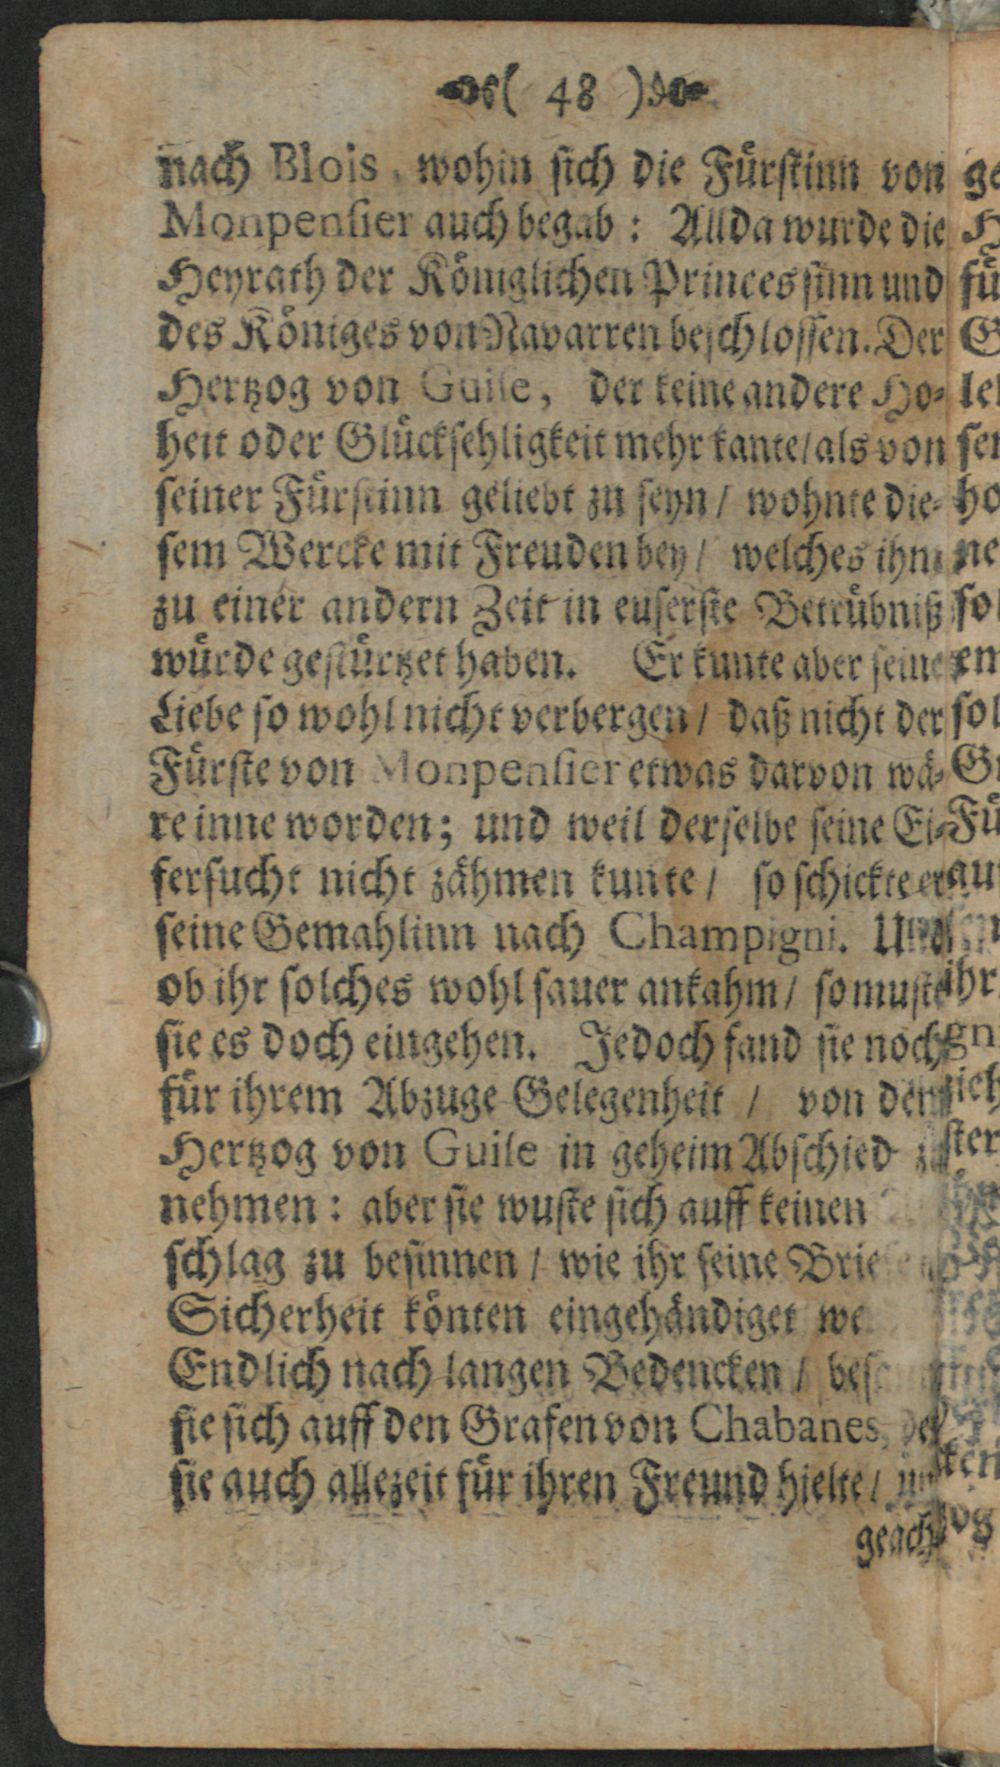 ( 48 )
nach Blois, wohin sich die Fürstinn von
Monpensier auch begab: Allda wurde die
Heyrath der Königlichen Princessinn und
des Königes von Navarren beschlossen. Der
Hertzog von Guise, der keine andere Ho-
heit oder Glücksehligkeit mehr kante/ als von
seiner Fürstinn geliebt zu seyn / wohnte die-
sem Wercke mit Freuden bey / welches ihn
zu einer andern Zeit in euserste Betrübniß
würde gestürtzet haben. Er kunte aber seine
Liebe so wohl nicht verbergen / daß nicht der
Fürste von Monpensier etwas darvon wä-
re inne worden; und weil derselbe seine Ei-
fersucht nicht zähmen kunte / so schickte er
seine Gemahlinn nach Champigni. Und
ob ihr solches wohl sauer ankahm / so muste
sie es doch eingehen. Jedoch fand sie noch
für ihrem Abzuge Gelegenheit / von dem
Hertzog von Guise in geheim Abschied zu
nehmen: aber sie wuste sich auff keinen
schlag zu besinnen / wie ihr seine Briefe
Sicherheit könten eingehändiget
Endlich nach langen Bedencken /
sie sich auff den Grafen von Chabanes,
sie auch allezeit für ihren Freund hielte /
geach